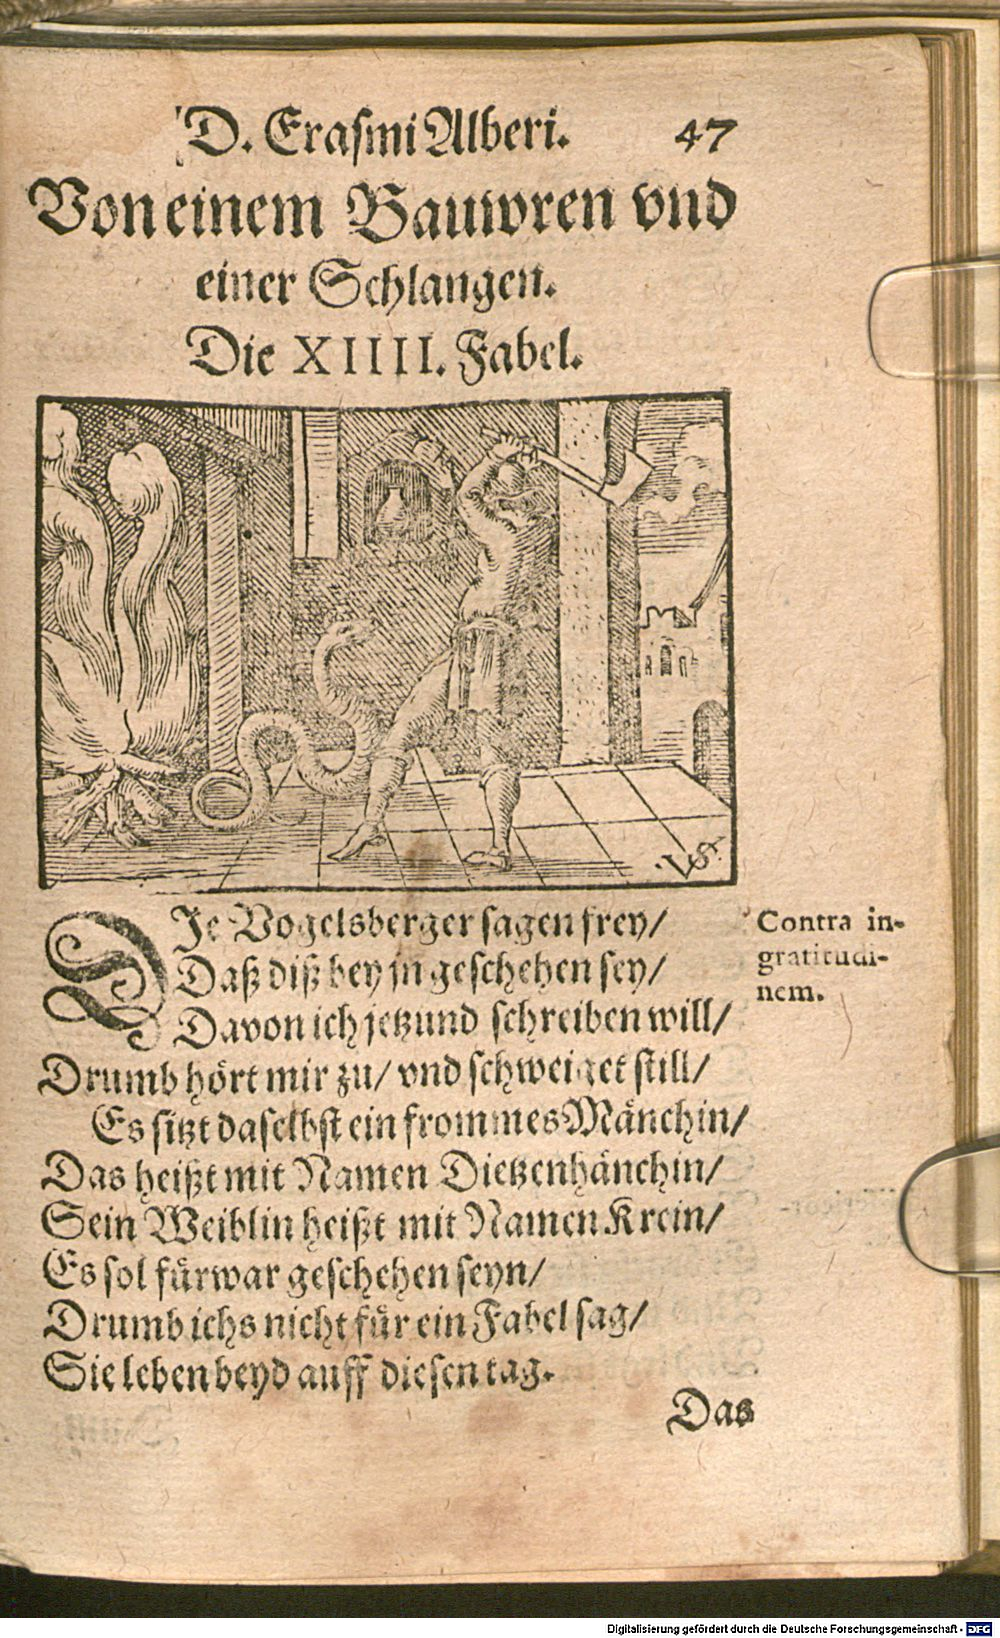 D. Erasmi Alberi. 47
Von einem Bauwren vnd
einer Schlangen.
Die XIIII. Fabel.
VS.
DIe Vogelsberger sagen frey/
Daß diß bey jn geschehen sey/
Davon ich jetzund schreiben will/
Drumb hört mir zu/ vnd schweiget still/
Es sitzt daselbst ein frommes Mänchin/
Das heißt mit Namen Dietzenhänchin/
Sein Weiblin heißt mit Namen Krein/
Es sol fürwar geschehen seyn/
Drumb ichs nicht für ein Fabel sag/
Sie leben beyd auff diesen tag.
Das
Contra in-
gratitudi-
nem.
Digitalisierung gefördert durch die Deutsche Forschungsgemeinschaft - DFG